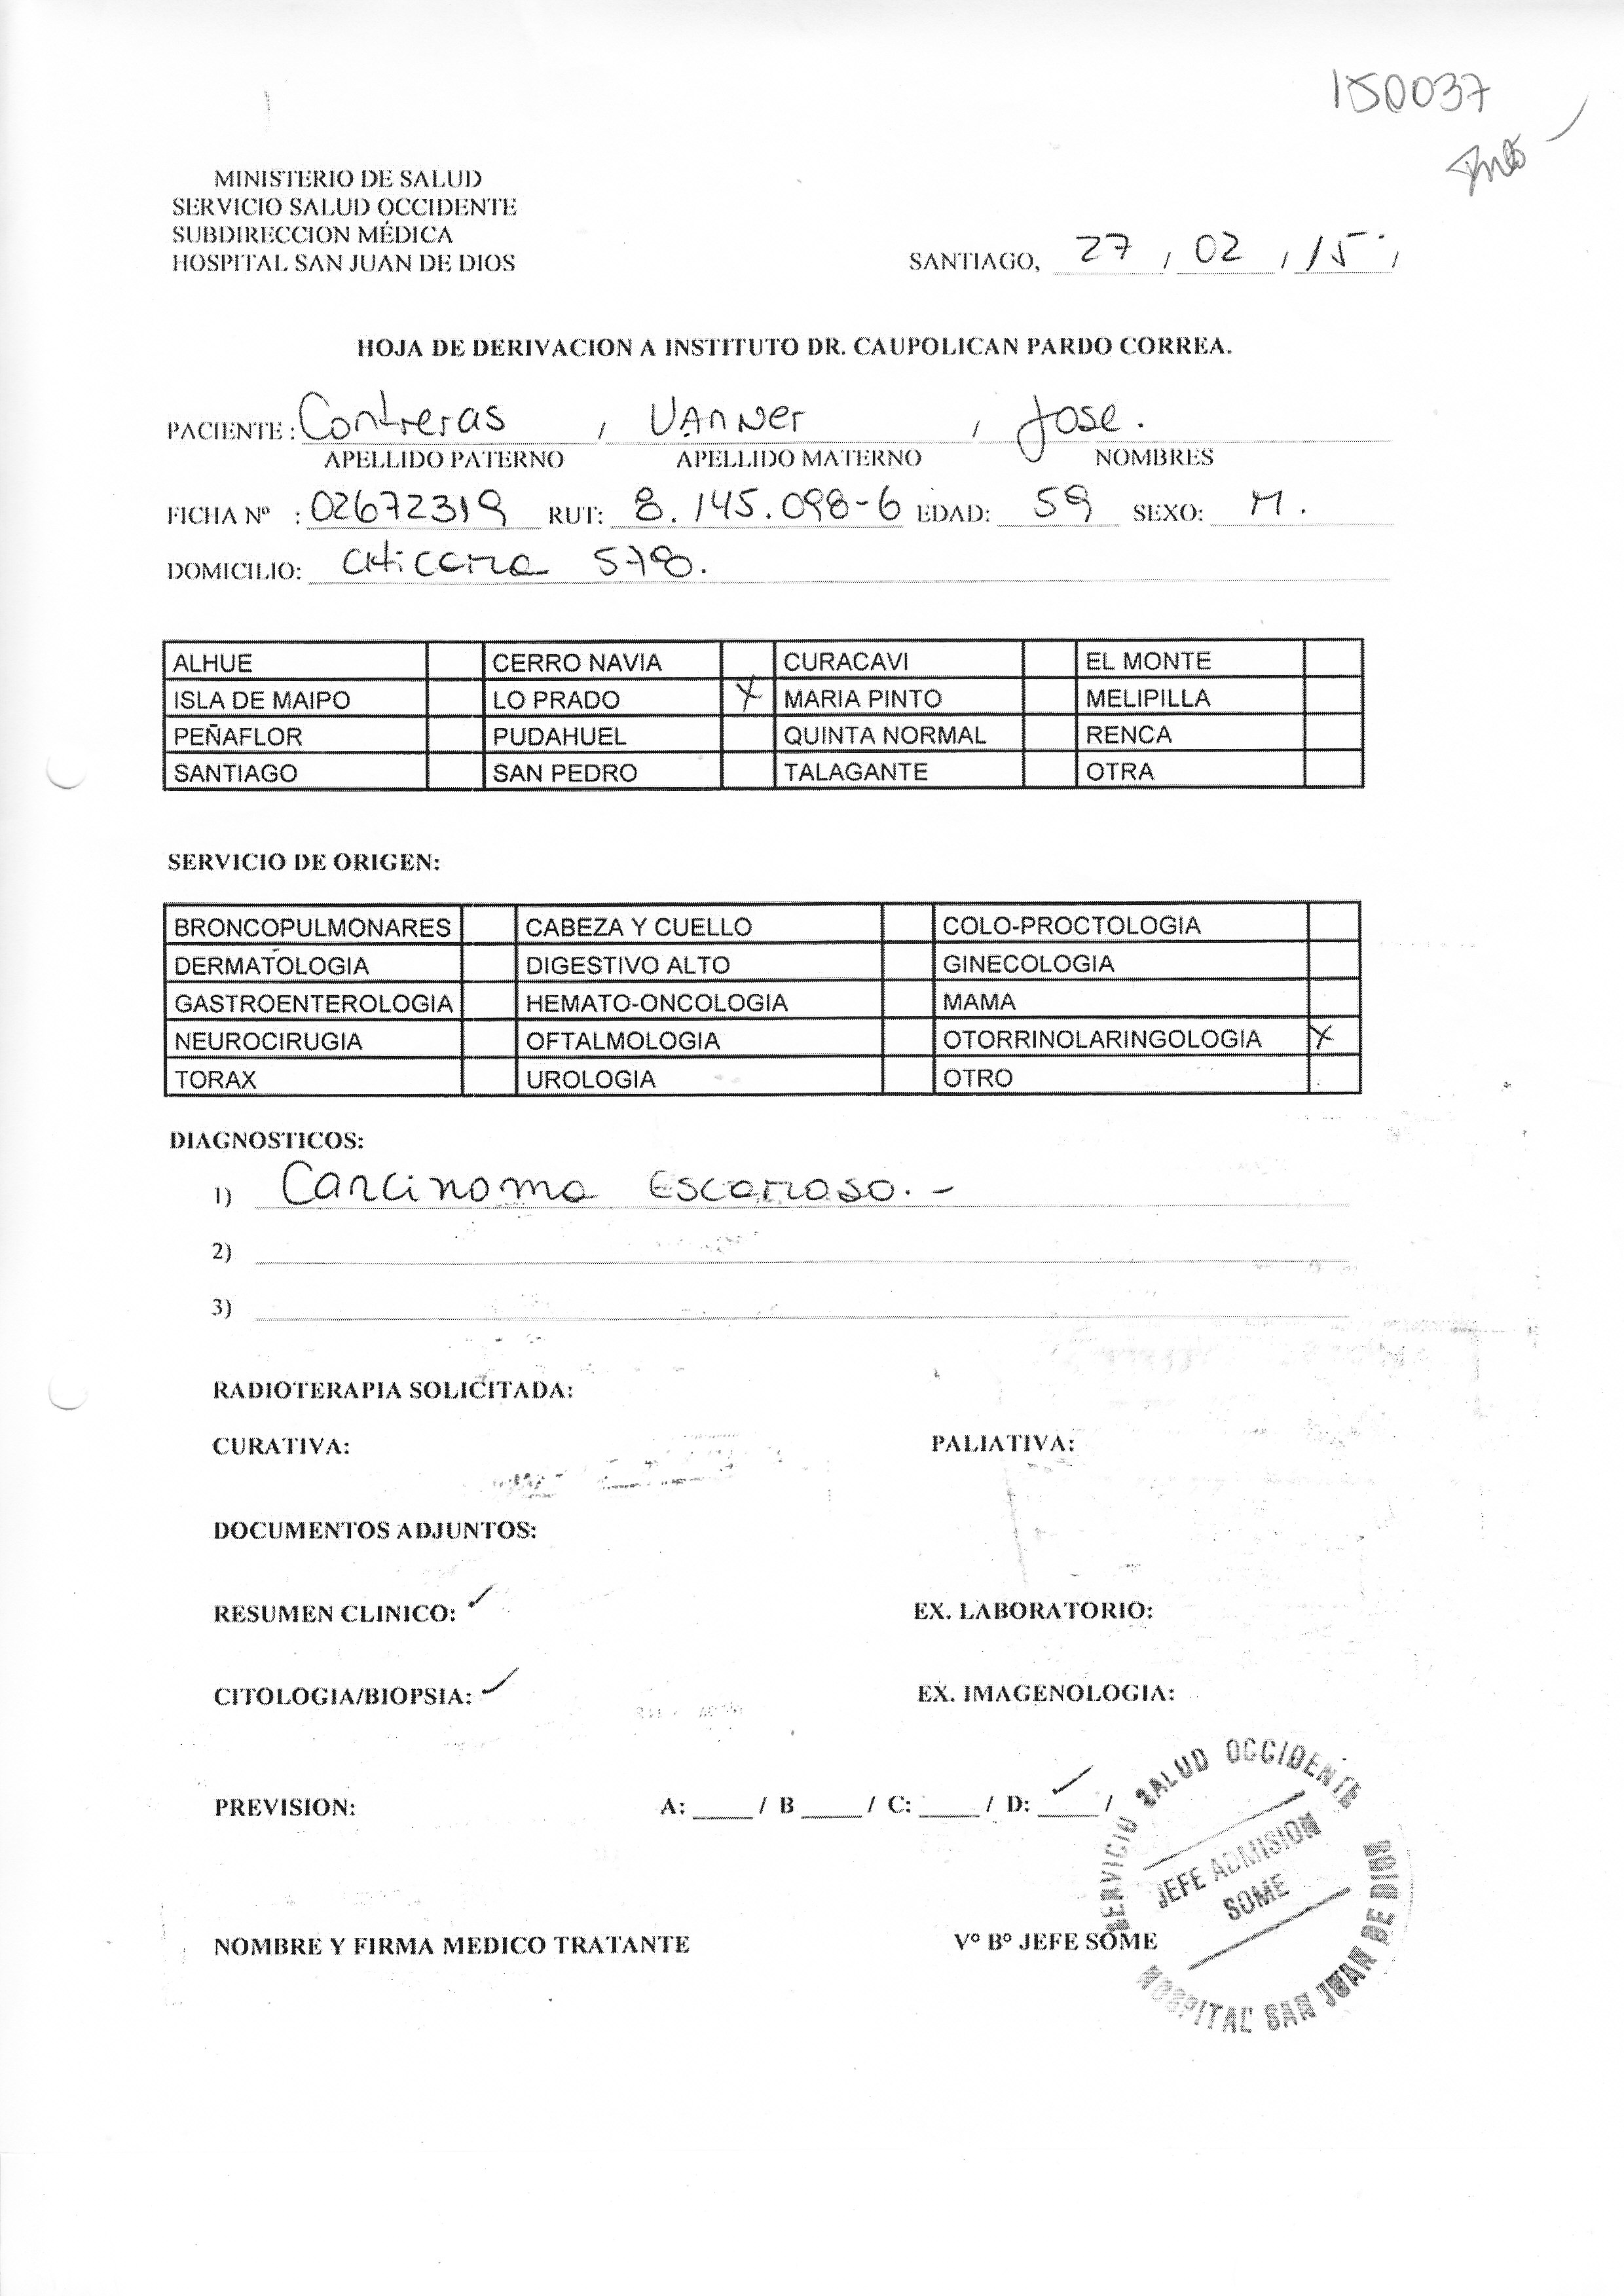 150037
MINISTERIO DE SALUD
SERVICIO SALUD OCCIDENTE
SUBDIRECCION MÉDICA
HOSPITAL SAN JUAN DE DIOS
SANTIAGO, 27 / 02 / 15 /
HOJA DE DERIVACION A INSTITUTO DR. CAUPOLICAN PARDO CORREA.
PACIENTE: Contreras / VANNer / Jose.
APELLIDO PATERNO APELLIDO MATERNO NOMBRES
FICHA Nº : 02672319 RUT: 8.145.098-6 EDAD: 59 SEXO: M.
DOMICILIO: 578.
ALHUE CERRO NAVIA CURACAVI EL MONTE
ISLA DE MAIPO LO PRADO X MARIA PINTO MELIPILLA
PEÑAFLOR PUDAHUEL QUINTA NORMAL RENCA
SANTIAGO SAN PEDRO TALAGANTE OTRA
SERVICIO DE ORIGEN:
BRONCOPULMONARES CABEZA Y CUELLO COLO-PROCTOLOGIA
DERMATOLOGIA DIGESTIVO ALTO GINECOLOGIA
GASTROENTEROLOGIA HEMATO-ONCOLOGIA MAMA
NEUROCIRUGIA OFTALMOLOGIA OTORRINOLARINGOLOGIA X
TORAX UROLOGIA OTRO
DIAGNOSTICOS:
1) Carcinoma Escamoso.-
2)
3)
RADIOTERAPIA SOLICITADA:
CURATIVA: PALIATIVA:
DOCUMENTOS ADJUNTOS:
RESUMEN CLINICO: ✓ EX. LABORATORIO:
CITOLOGIA/BIOPSIA: ✓ EX. IMAGENOLOGIA:
PREVISION: A: ____ / B ____ / C: ____ / D: ✓ /
SERVICIO SALUD OCCIDENTE
JEFE ADMISION
SOME
HOSPITAL SAN JUAN DE DIOS
NOMBRE Y FIRMA MEDICO TRATANTE Vº Bº JEFE SOME